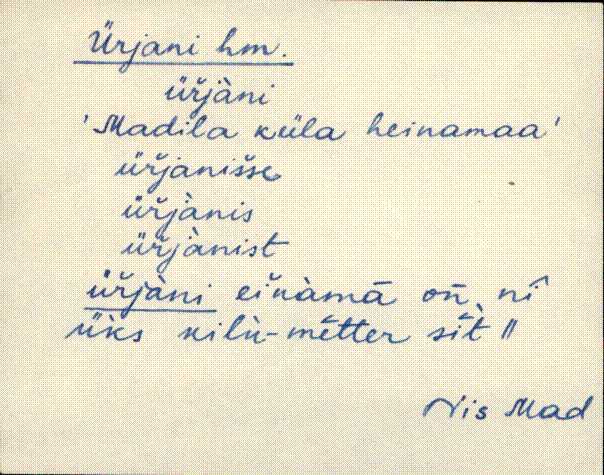 Ürjani hm.
üŕjàni
'Madila küla heinamaa'
üŕjanišse
üŕjànis
üŕjànist
üŕjàni eińàmā oň, nî
üks kilù-mètter sìt ||
Nis Mad